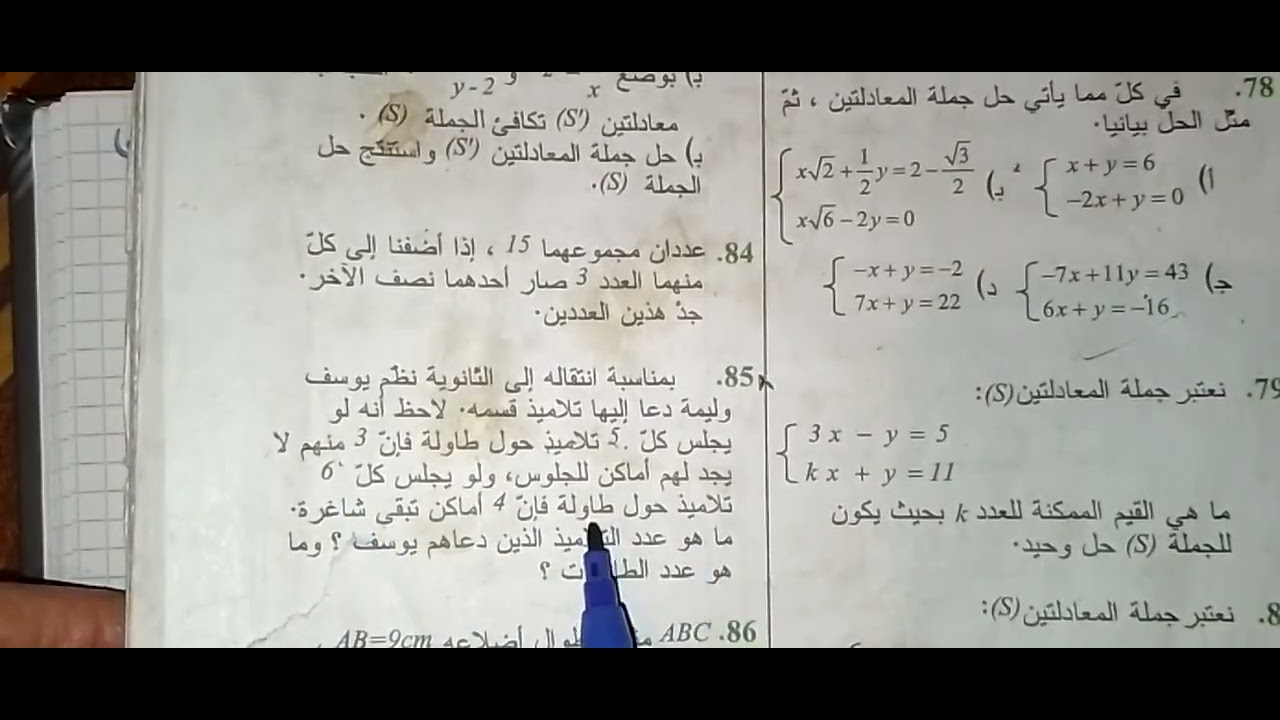 78. في كلّ مما يأتي حل جملة المعادلتين ، ثمّ
مثّل الحل بيانيا.
أ) { x + y = 6
-2x + y = 0
بـ) { x√2 + 1/2 y = 2 - √3/2
x√6 - 2y = 0
جـ) { -7x + 11y = 43
6x + y = -16
د) { -x + y = -2
7x + y = 22
79. نعتبر جملة المعادلتين (S):
{ 3x - y = 5
kx + y = 11
ما هي القيم الممكنة للعدد k بحيث يكون
للجملة (S) حل وحيد.
نعتبر جملة المعادلتين (S):
بـ) بوضع x و y-2
معادلتين (S') تكافئ الجملة (S) .
بـ) حل جملة المعادلتين (S') واستنتج حل
الجملة (S).
84. عددان مجموعهما 15 ، إذا أضفنا إلى كلّ
منهما العدد 3 صار أحدهما نصف الآخر.
جدْ هذين العددين.
85. بمناسبة انتقاله إلى الثانوية نظّم يوسف
وليمة دعا إليها تلاميذ قسمه. لاحظ أنه لو
يجلس كلّ 5 تلاميذ حول طاولة فإنّ 3 منهم لا
يجد لهم أماكن للجلوس، ولو يجلس كلّ 6
تلاميذ حول طاولة فإنّ 4 أماكن تبقى شاغرة.
ما هو عدد التلاميذ الذين دعاهم يوسف ؟ وما
هو عدد الطاولات ؟
86. ABC أطوال أضلاعه AB=9cm